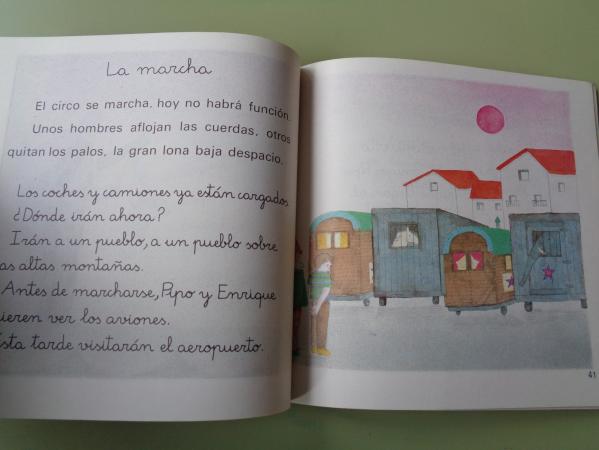 La marcha
El circo se marcha, hoy no habrá función.
Unos hombres aflojan las cuerdas, otros
quitan los palos, la gran lona baja despacio.
Los coches y camiones ya están cargados
¿Dónde irán ahora?
Irán a un pueblo, a un pueblo sobre
as altas montañas.
Antes de marcharse, Pipo y Enrique
ieren ver los aviones.
sta tarde visitarán el aeropuerto.
41